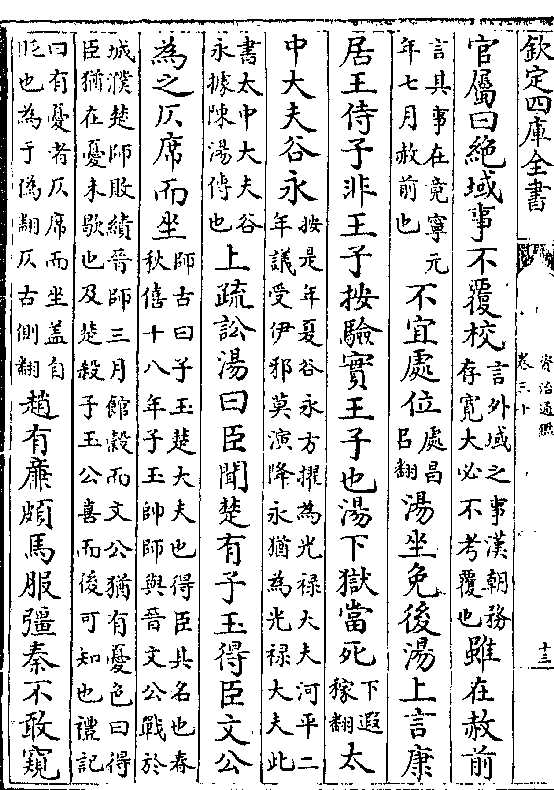 欽定四庫全書
資治通鑑
卷三十
十三
官屬曰絶域事不覆校
言外域之事漢朝務
存寛大必不考覆也
雖在赦前
言其事在竟寧元
年七月赦前也
不宜處位
處昌
吕翻
湯坐免後湯上言康
居王侍子非王子按驗實王子也湯下獄當死
下遐
稼翻
太
中大夫谷永
按是年夏谷永方擢為光禄大夫河平二
年議受伊邪莫演降永猶為光禄大夫此
書太中大夫谷
永據陳湯傳也
上疏訟湯曰臣聞楚有子玉得臣文公
為之仄席而坐
師古曰子玉楚大夫也得臣其名也春
秋僖十八年子玉帥師與晉文公戰於
城濮楚師敗績晉師三月館穀而文公猶有憂色曰得
臣猶在憂未歇也及楚殺子玉公喜而後可知也禮記
曰有憂者仄席而坐盖自
貶也為于偽翻仄古側翻
趙有亷頗馬服彊秦不敢窺